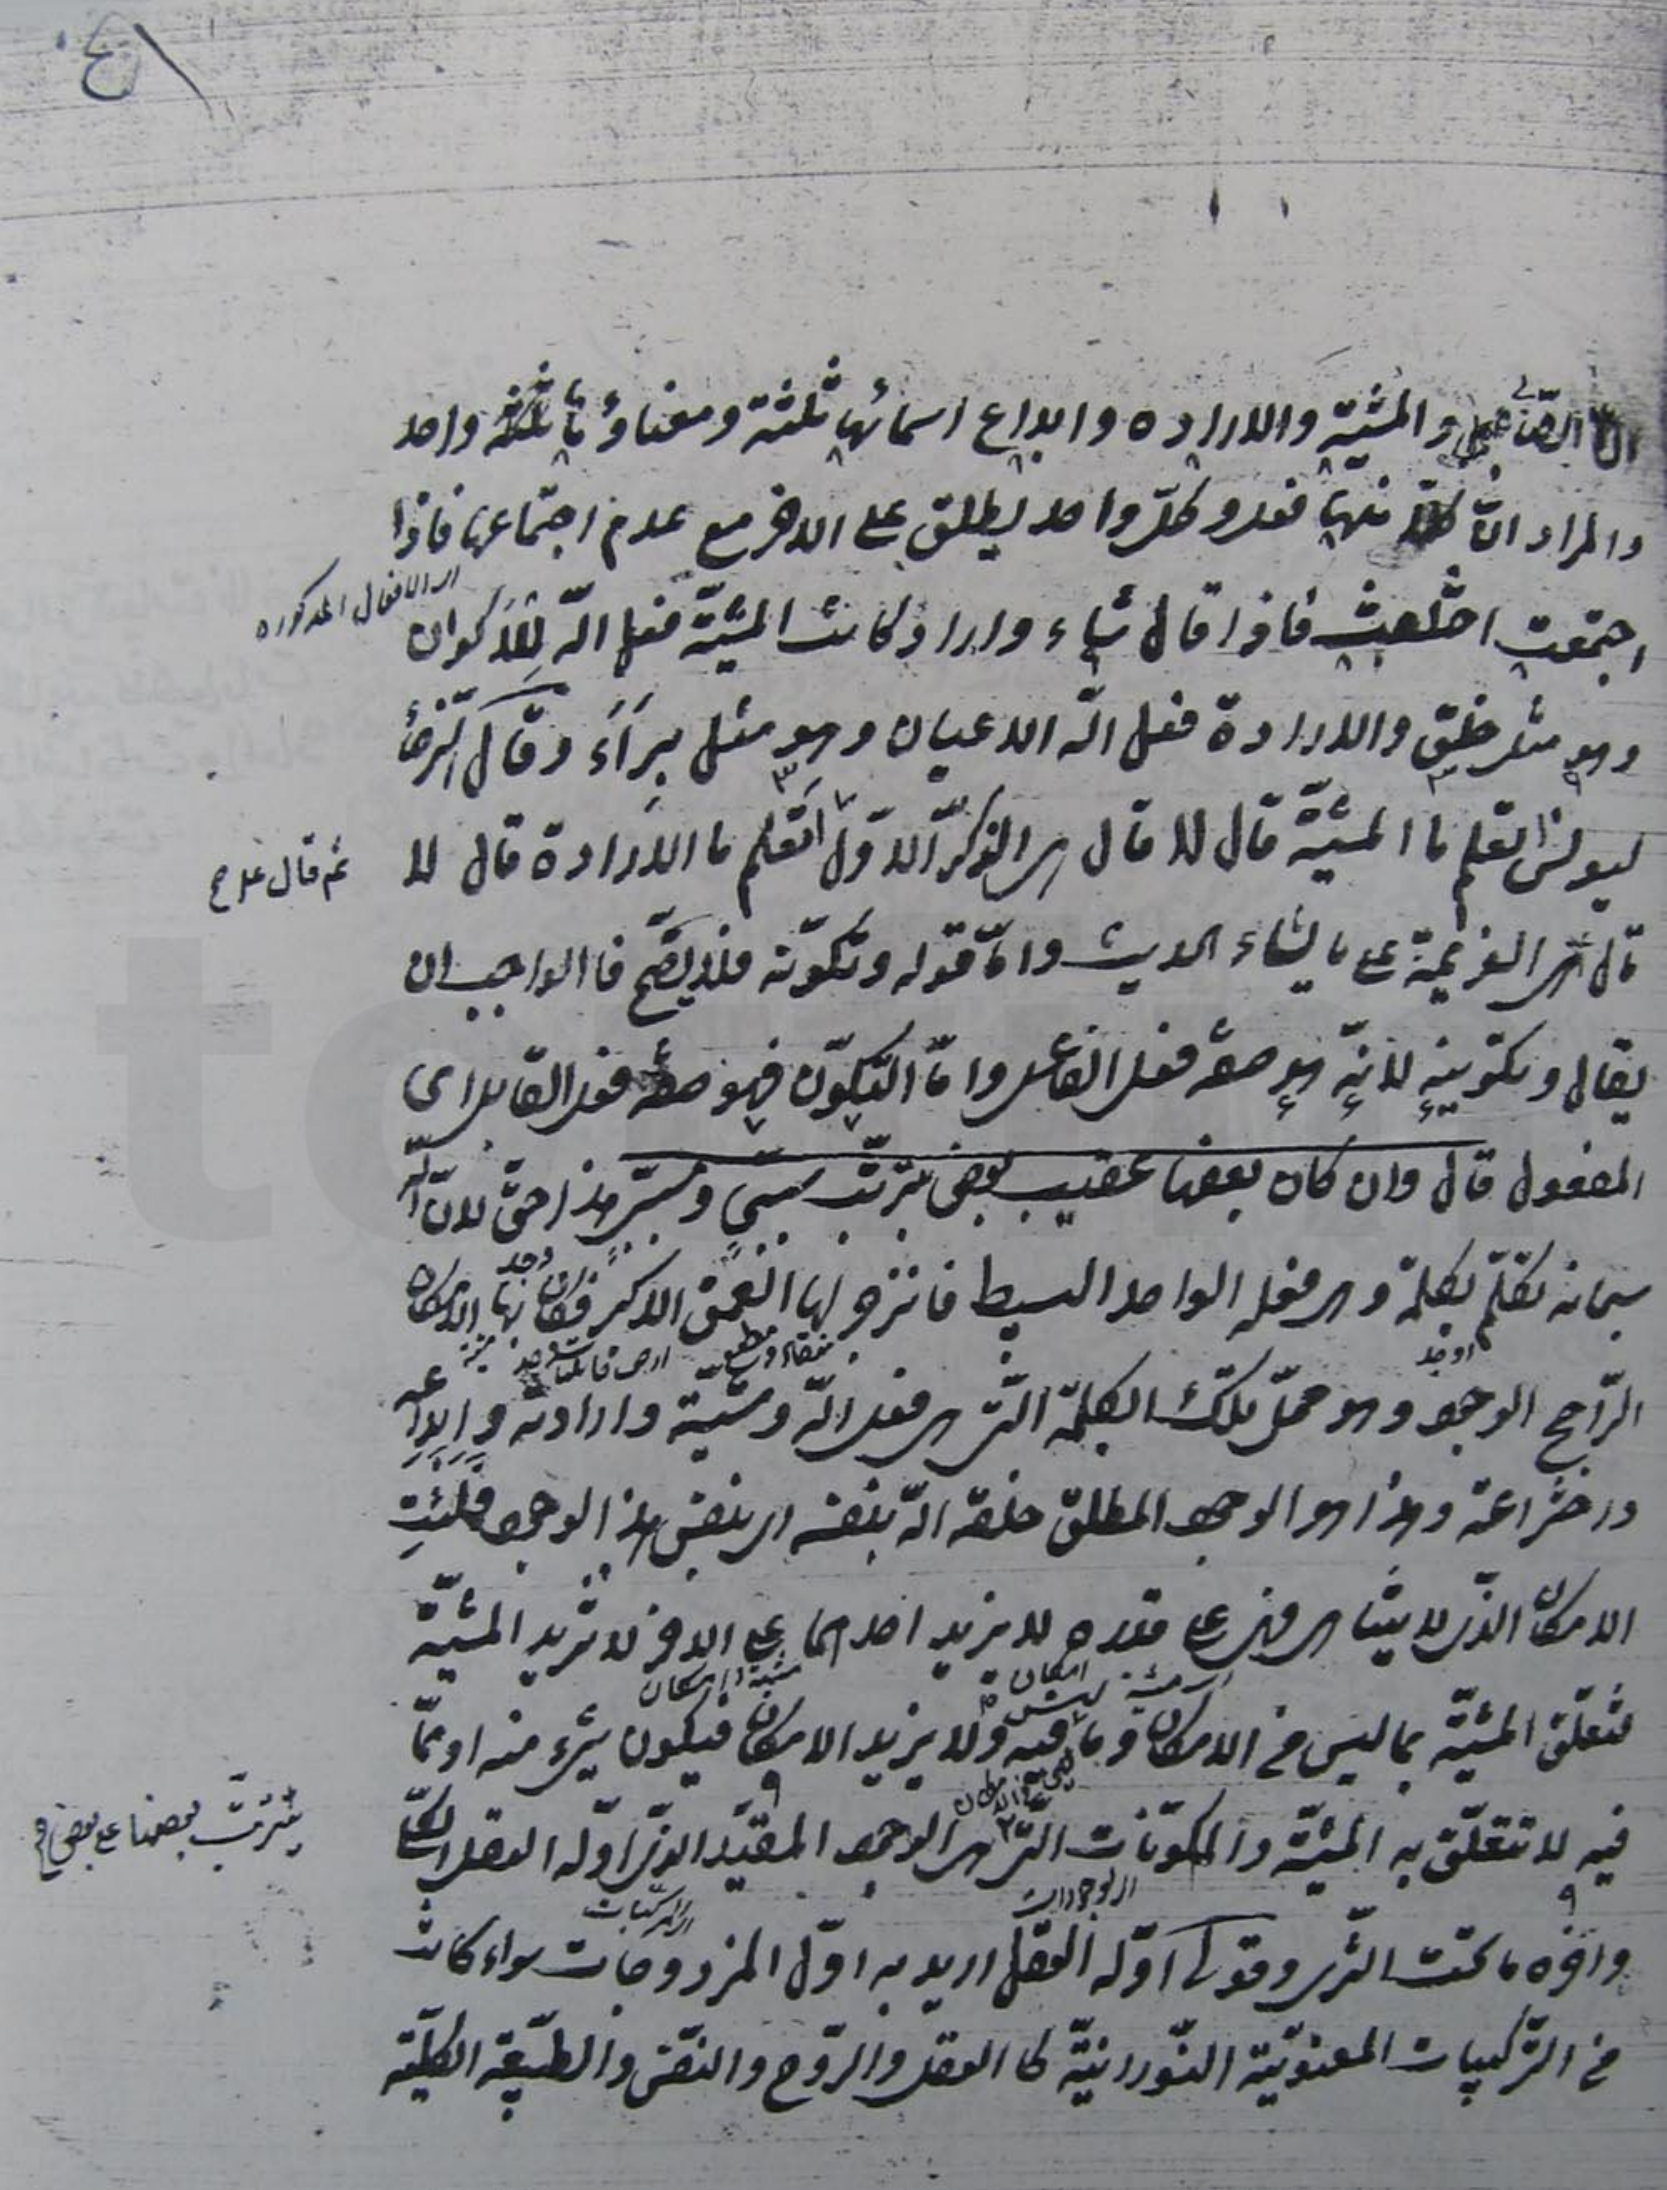 ٤١
والمشية والاراده وابداع اسمائها ثلثة ومعناؤها واحد
والمراد انّ كلا منها فعل وكلّ واحد يطلق على الاخر مع عدم اجتماعها فاذا
الافعال المذكوره
اجتمعت اختلفت فاذا قال شاء واراد كانت المشيّة فعل الله للاكوان
وهو مثل خلق والارادة فعل الله الاعيان وهو مثل براء وقال الرضا
ليونس اتعلم ما المشيّة قال لا قال هى الذكر الاوّل اتعلم ما الارادة قال لا
ثم قال
قال هى العزيمة على ما يشاء الحديث وامّا قوله وتكوّنه فلا يصّح فا الواجب ان
يقال وتكوينه لانّه هو صفة فعل الفاعل وامّا التكوّن فهو صفة فعل القابل اى
المفعول قال وان كان بعضها عقيب بعض بترتّب سببىّ ومسبّبىّ هذا حق لانّ الله
سبحانه تكلّم بكلمة وهى فعله الواحد البسيط فانزجر لها العمق الاكبر فكان بها الامكان
الرّاجح الوجود وهو محلّ تلك الكلمة التى هى فعل الله ومشيّة وارادته وابداعه
واختراعه وهذا هو الوجود المطلق خلقه الله بنفسه اى بنفس هذا الوجود فملئت
الامكان الذى لا يتناهى فهى على قدره لا يزيد احدهما على الاخر لا تزيد المشيّة
امكان
فتعلّق المشيّة بما ليس فى الامكان وما فيه ولا يزيد الامكان فيكون شىء منه او ممّا
فيه لا تتعلّق به المشيّة والمكوّنات التى هى الوجود المقيّد الذى اوّله العقل الكلّى
يترتب بعضها على بعض
الوجودات
المركبات
واخره ما تحت الثرى وقولى اوّله العقل اريد به اوّل المزدوجات سواء كانت
فى التركيبات المعنويّة النّورانيّة كا العقل والرّوح والنفس والطبيعة الكليّة